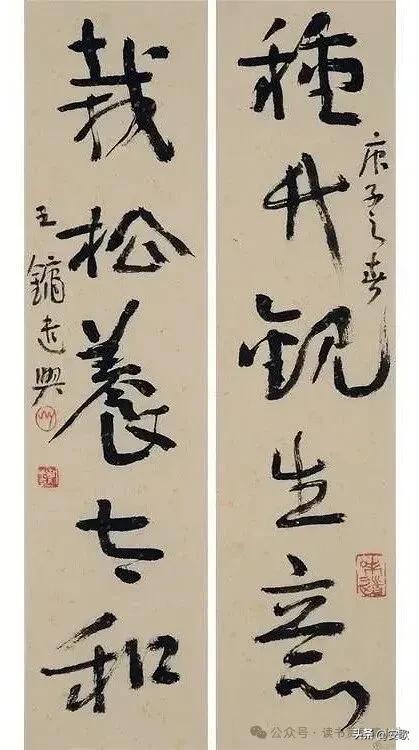 種竹觀生意
庚子之春
栽松養太和
王鏞遣興
公众号 · 读书
头条 @安歌